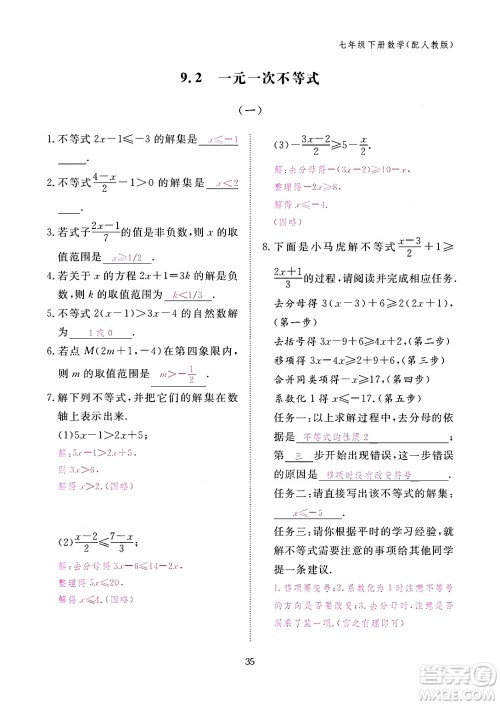 七年级下册数学(配人教版)
9.2 一元一次不等式
(一)
1.不等式2x-1≤-3的解集是 x≤-1
.
2.不等式(4-x)/2-1>0的解集是 x<2
.
3.若式子(2x-1)/7的值是非负数,则x的取
值范围是 x≥1/2 .
4.若关于x的方程2x+1=3k的解是负
数,则k的取值范围是 k<1/3 .
5.不等式2(x-1)>3x-4的自然数解
为 1或0 .
6.若点M(2m+1,-4)在第四象限内,
则m的取值范围是 m>-1/2 .
7.解下列不等式,并把它们的解集在数
轴上表示出来.
(1)5x-1>2x+5;
解:5x-2x>5+1,
则3x>6,
解得x>2.(图略)
(2)(x-2)/2≤(7-x)/3;
解:去分母得3x-6≤14-2x,
整理得5x≤20,
解得x≤4.(图略)
(3)-(3x-2)/2≥(x-1)/2.
8.下面是小马虎解不等式(x-3)/2+1≥
(2x+1)/3的过程,请阅读并完成任务.
去分母得3(x-3)+6≥2(2x+1)
(第一步)
去括号得3x-9+6≥4x+2(第二步)
移项得3x-4x≥
合并同类项得
系数化为1,得
(第五步)
任务一:以上求解过程中,去分母的依
据是 不等式的性质2 ,
第 三 步开始出现错误,这一步错误
的原因是 移项时没有改变符号 .
任务二:请直接写出该不等式的解集:
x≤-5 .
任务三:请你根据平时的学习经验,就
解不等式需要注意的事项给其他同学
提一条建议.
解:1.移项要变号;2.系数化为1时注意不等号
的方向是否要改变;3.去分母时注意不要
漏乘了常数项.(言之有理即可)
35